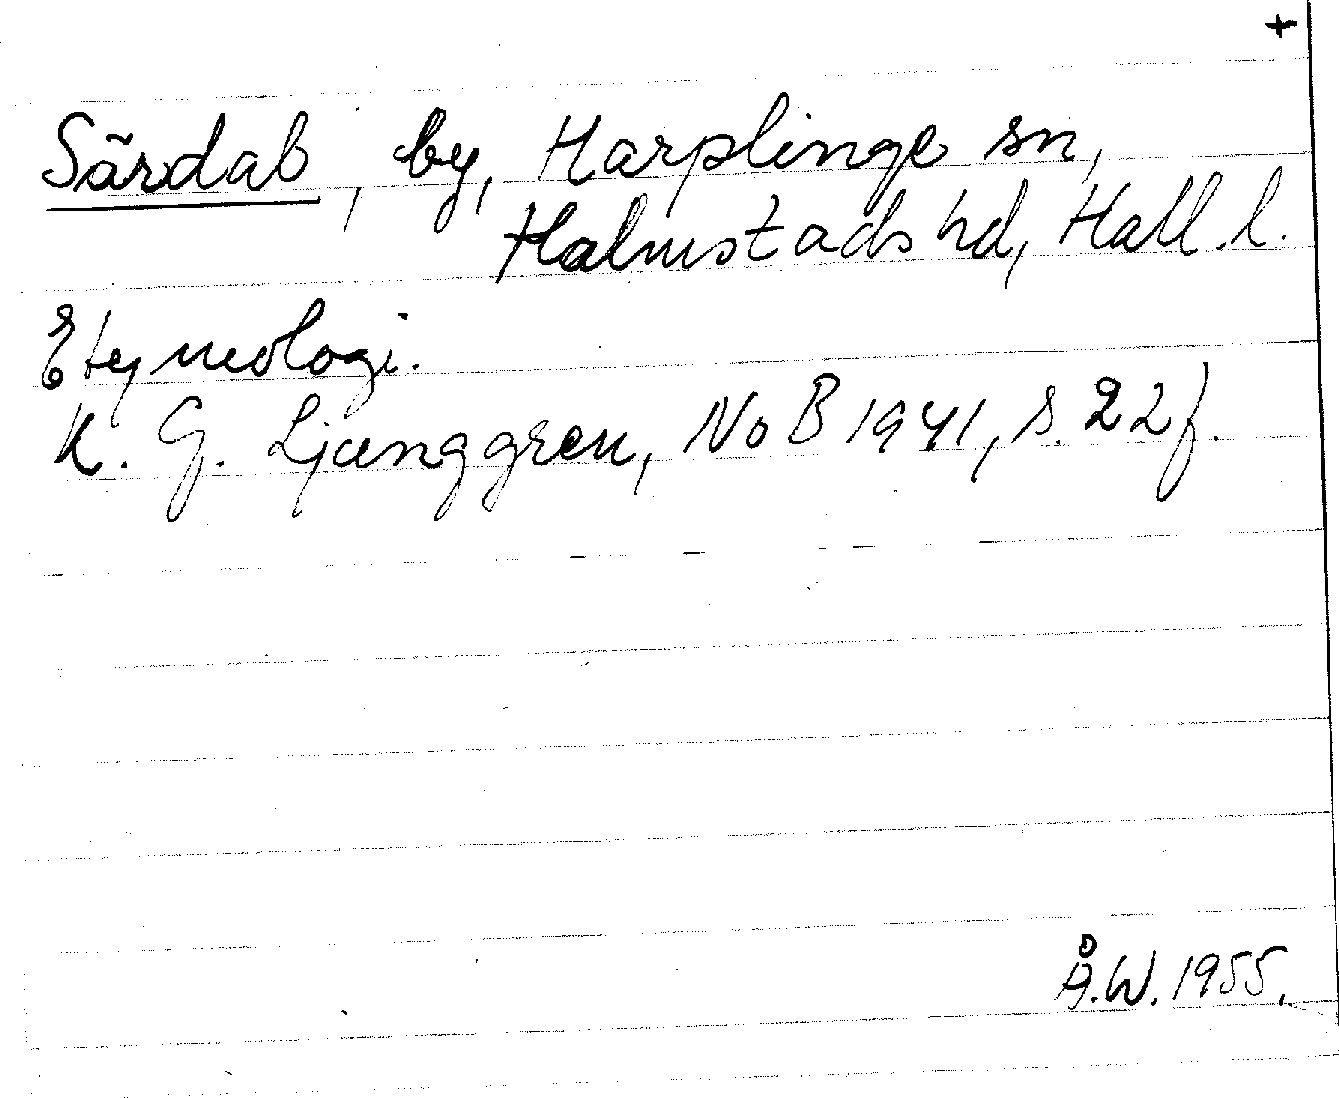 +
Särdal, by, Harplinge sn,
Halmstads hd, Hall. l.
Etymologi.
K. G. Ljunggren, NoB 1941, s. 22 f.
Å.W. 1955.